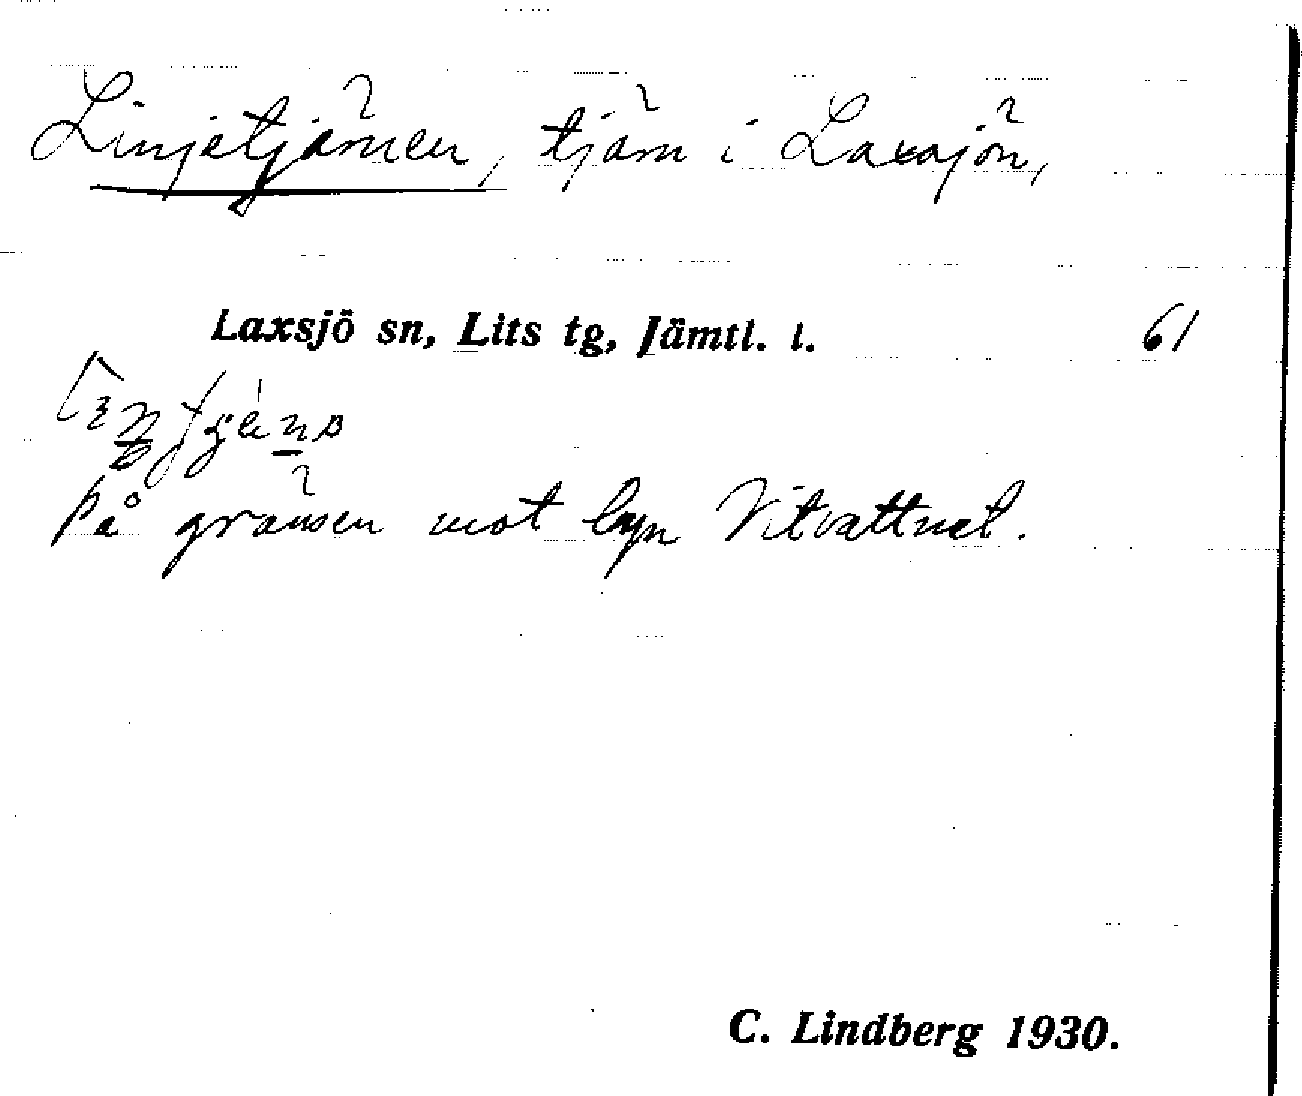 Linjetjärnen, tjärn i Laxsjön,
Laxsjö sn, Lits tg, Jämtl. l. 61
På gränsen mot byn Vitvattnet.
C. Lindberg 1930.